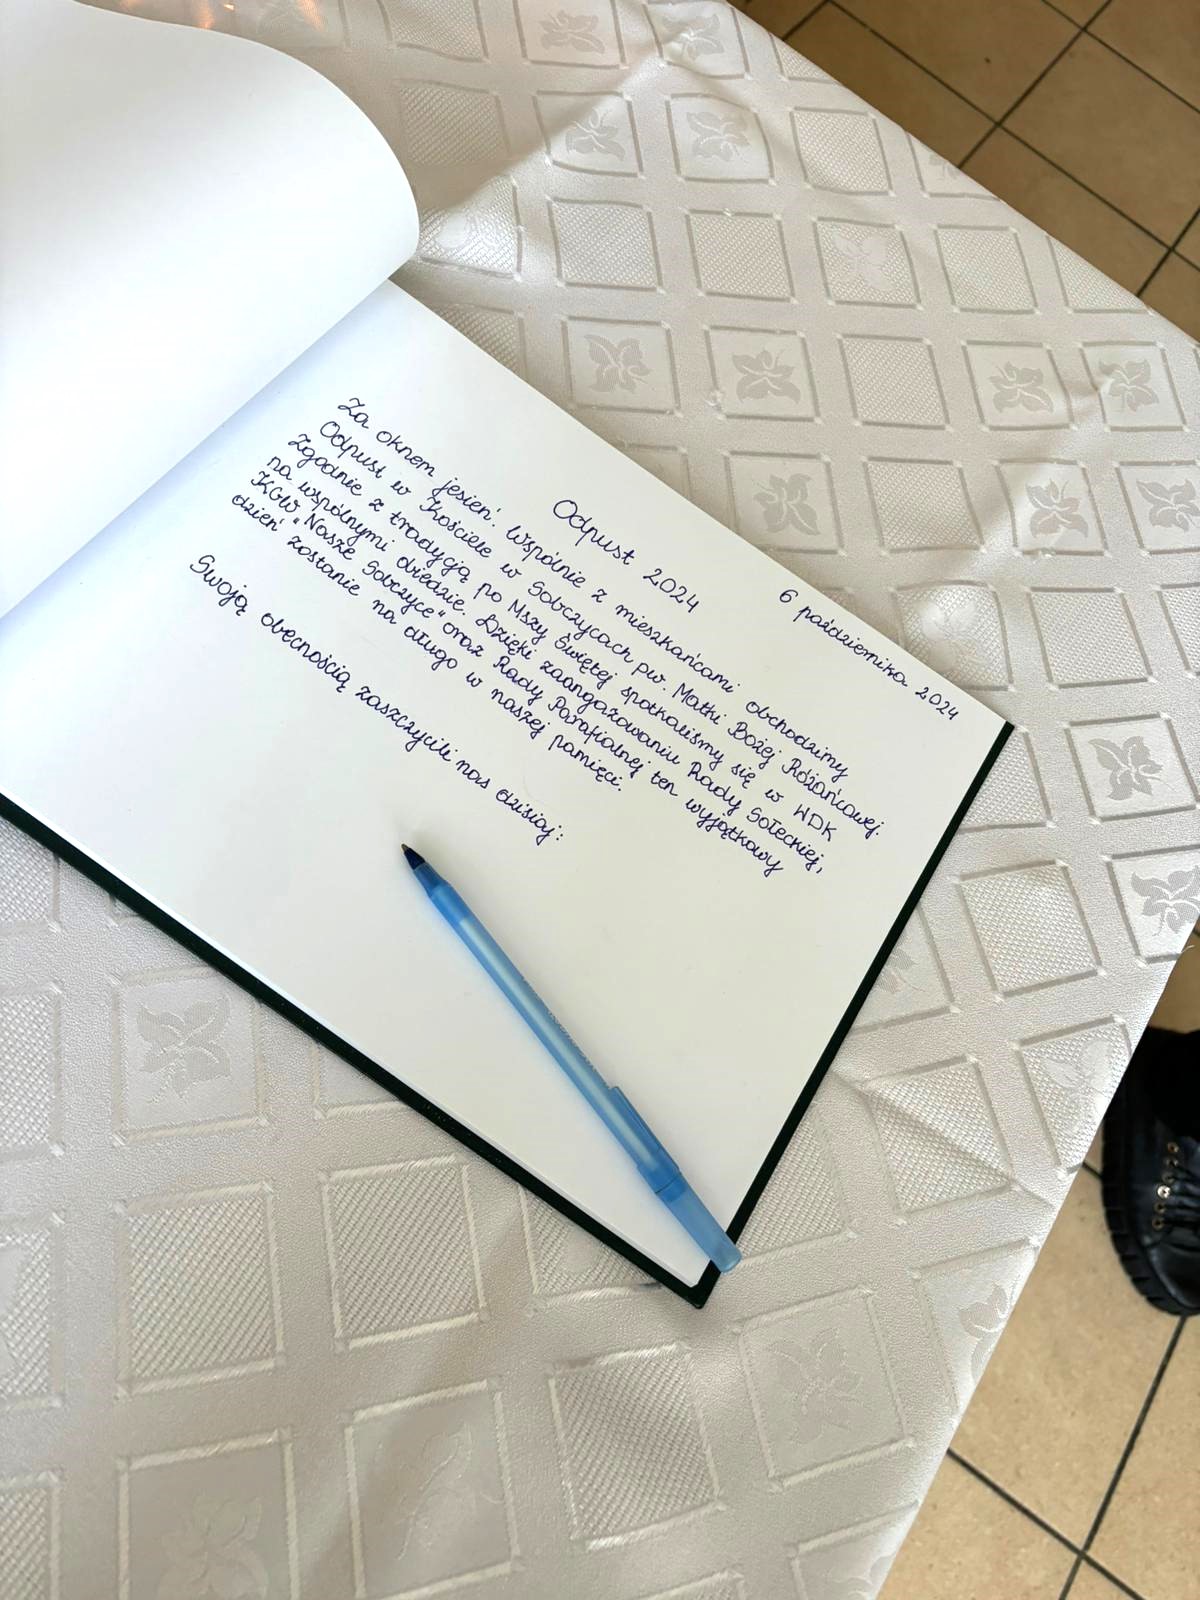 6 października 2024
Odpust 2024
Za oknem jesień. Wspólnie z mieszkańcami obchodzimy
Odpust w Kościele w Sobczycach pw. Matki Bożej Różańcowej.
Zgodnie z tradycją po Mszy Świętej spotkaliśmy się w WDK
na wspólnymi obiedzie. Dzięki zaangażowaniu Rady Sołeckiej,
KGW "Nasze Sobczyce" oraz Rady Parafialnej ten wyjątkowy
dzień zostanie na długo w naszej pamięci.
Swoją obecnością zaszczycili nas dzisiaj: